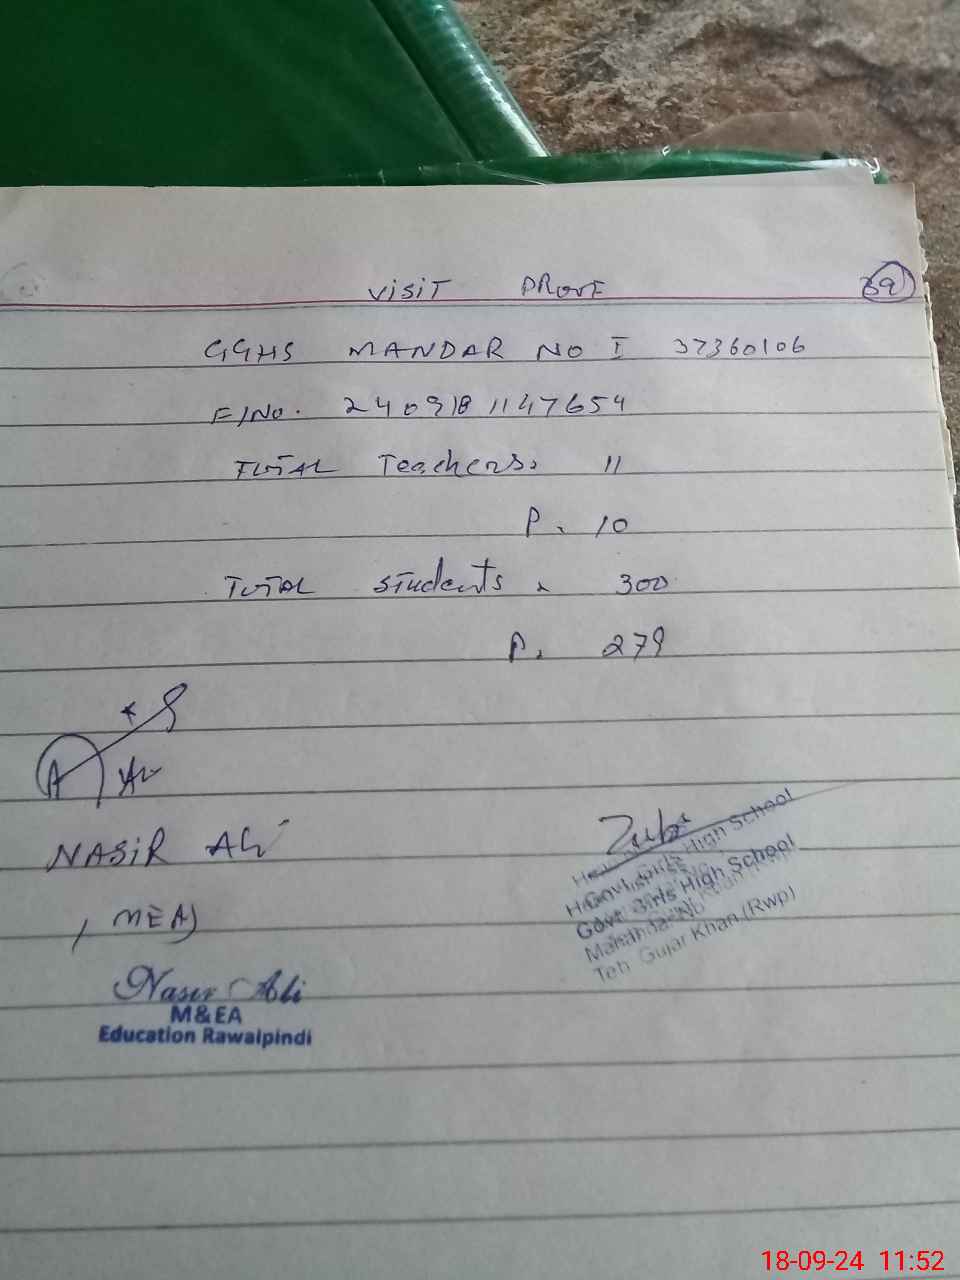 VISIT PROVE
39
GGHS MANDAR NO I 37360106
F/NO. 240918 1147654
TOTAL Teachers. 11
P. 10
TOTAL Students 300
P. 279
NASIR Ali
MEA)
Nasir Ali
M&EA
Education Rawalpindi
Govt Girls High School
Govt Girls High School
Teh Gujar Khan (Rwp)
18-09-24 11:52